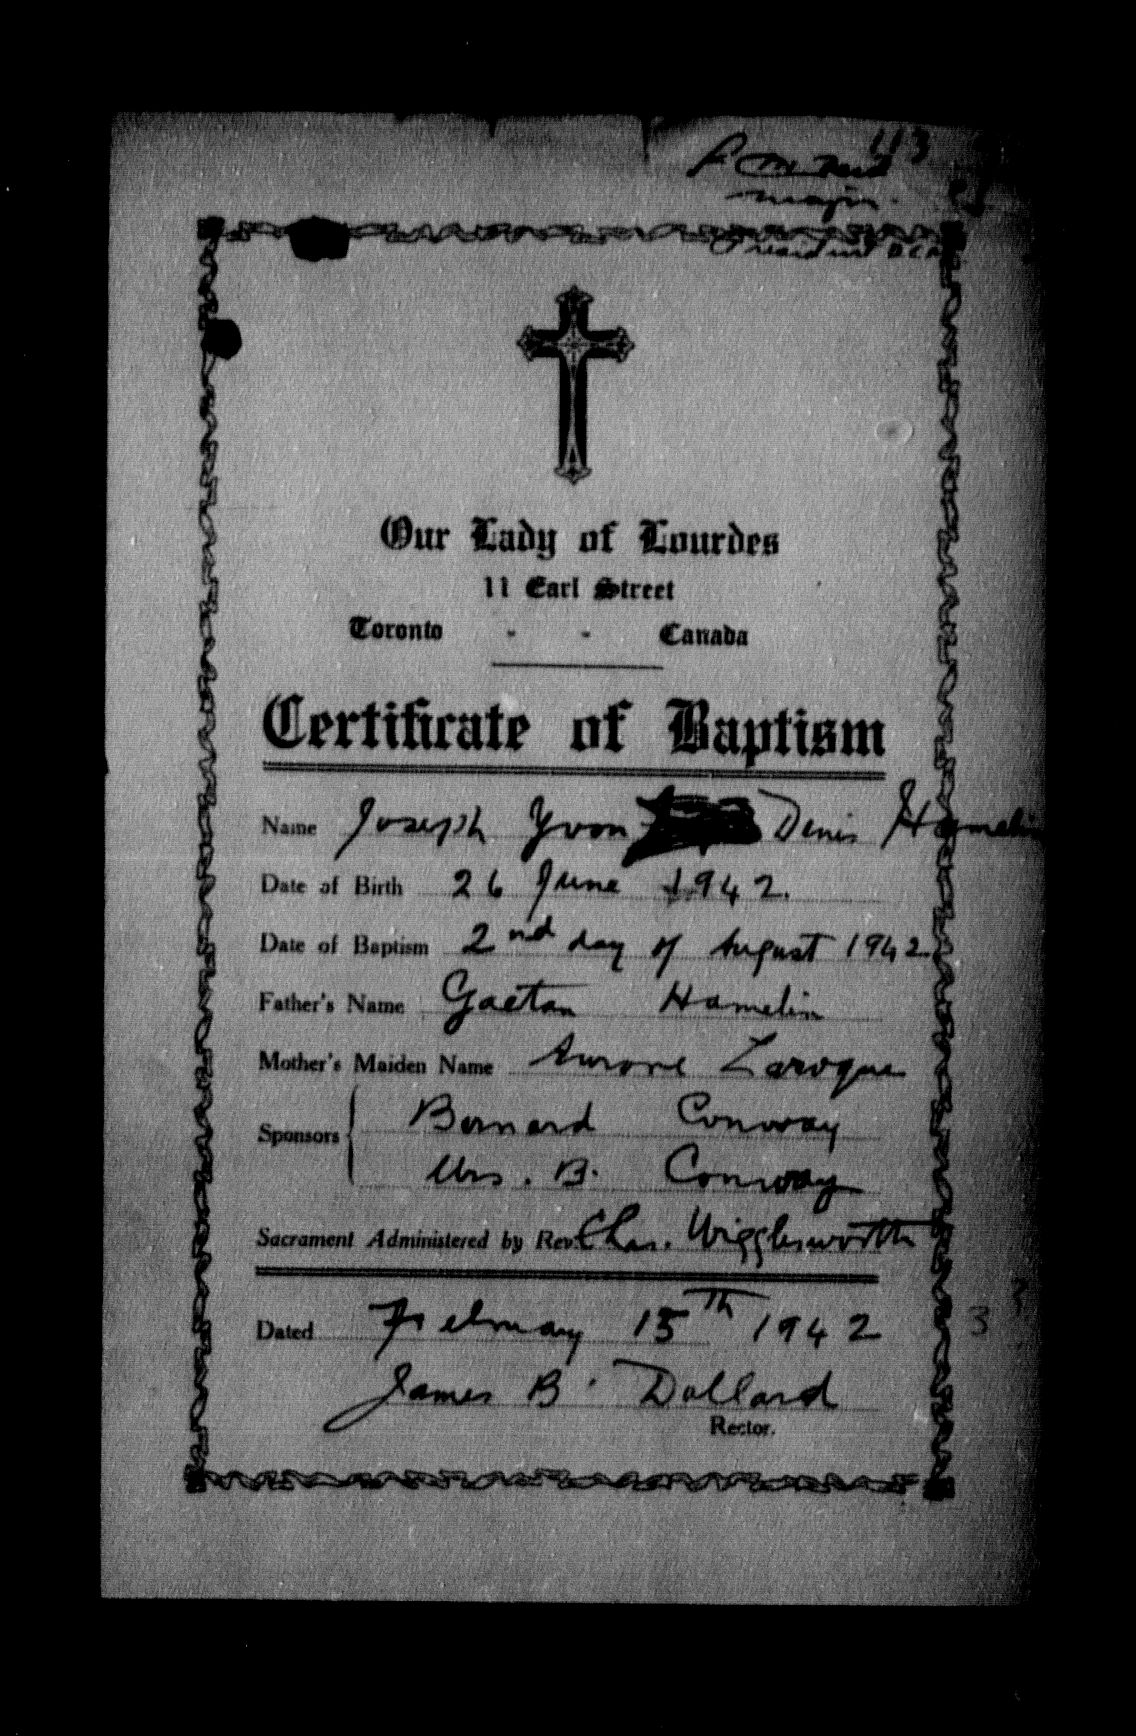 113
major.
President DCA
Our Lady of Lourdes
11 Earl Street
Toronto - - Canada
Certificate of Baptism
Name Joseph Yvon Denis Hamelin
Date of Birth 26 June 1942.
Date of Baptism 2nd day of August 1942
Father's Name Gaetan Hamelin
Mother's Maiden Name Aurore Laroque
Sponsors Bernard Conway
Mrs. B. Conway
Sacrament Administered by Rev. Chas. Wigglesworth
Dated February 15th 1942
James B. Dollard
Rector.
3